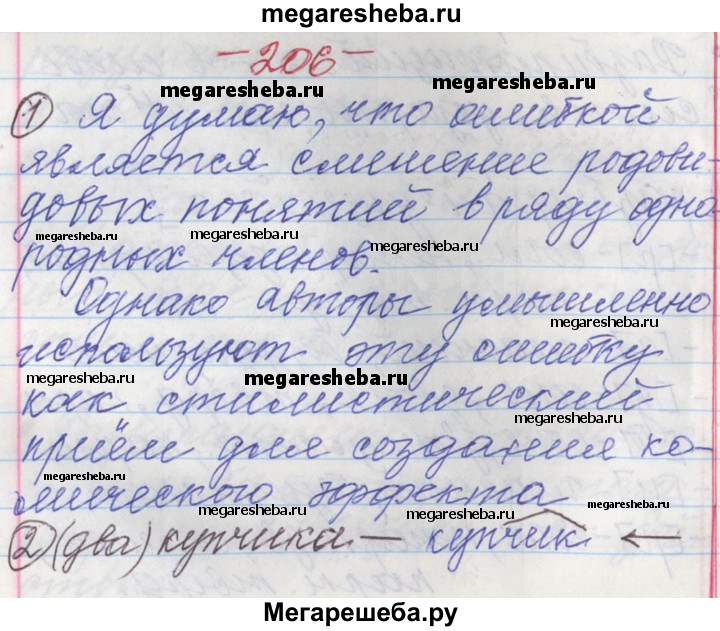 megaresheba.ru
-206-
megaresheba.ru megaresheba.ru
① Я думаю, что ошибкой
является смешение родови-
довых понятий в ряду одно
megaresheba.ru megaresheba.ru megaresheba.ru
родных членов.
Однако авторы умышленно
megaresheba.ru
используют эту ошибку
megaresheba.ru megaresheba.ru megaresheba.ru
как стилистический
приём для создания ко-
megaresheba.ru megaresheba.ru
мического эффекта
megaresheba.ru megaresheba.ru megaresheba.ru
② (два) купчика — купчик ←
Мегарешеба.ру